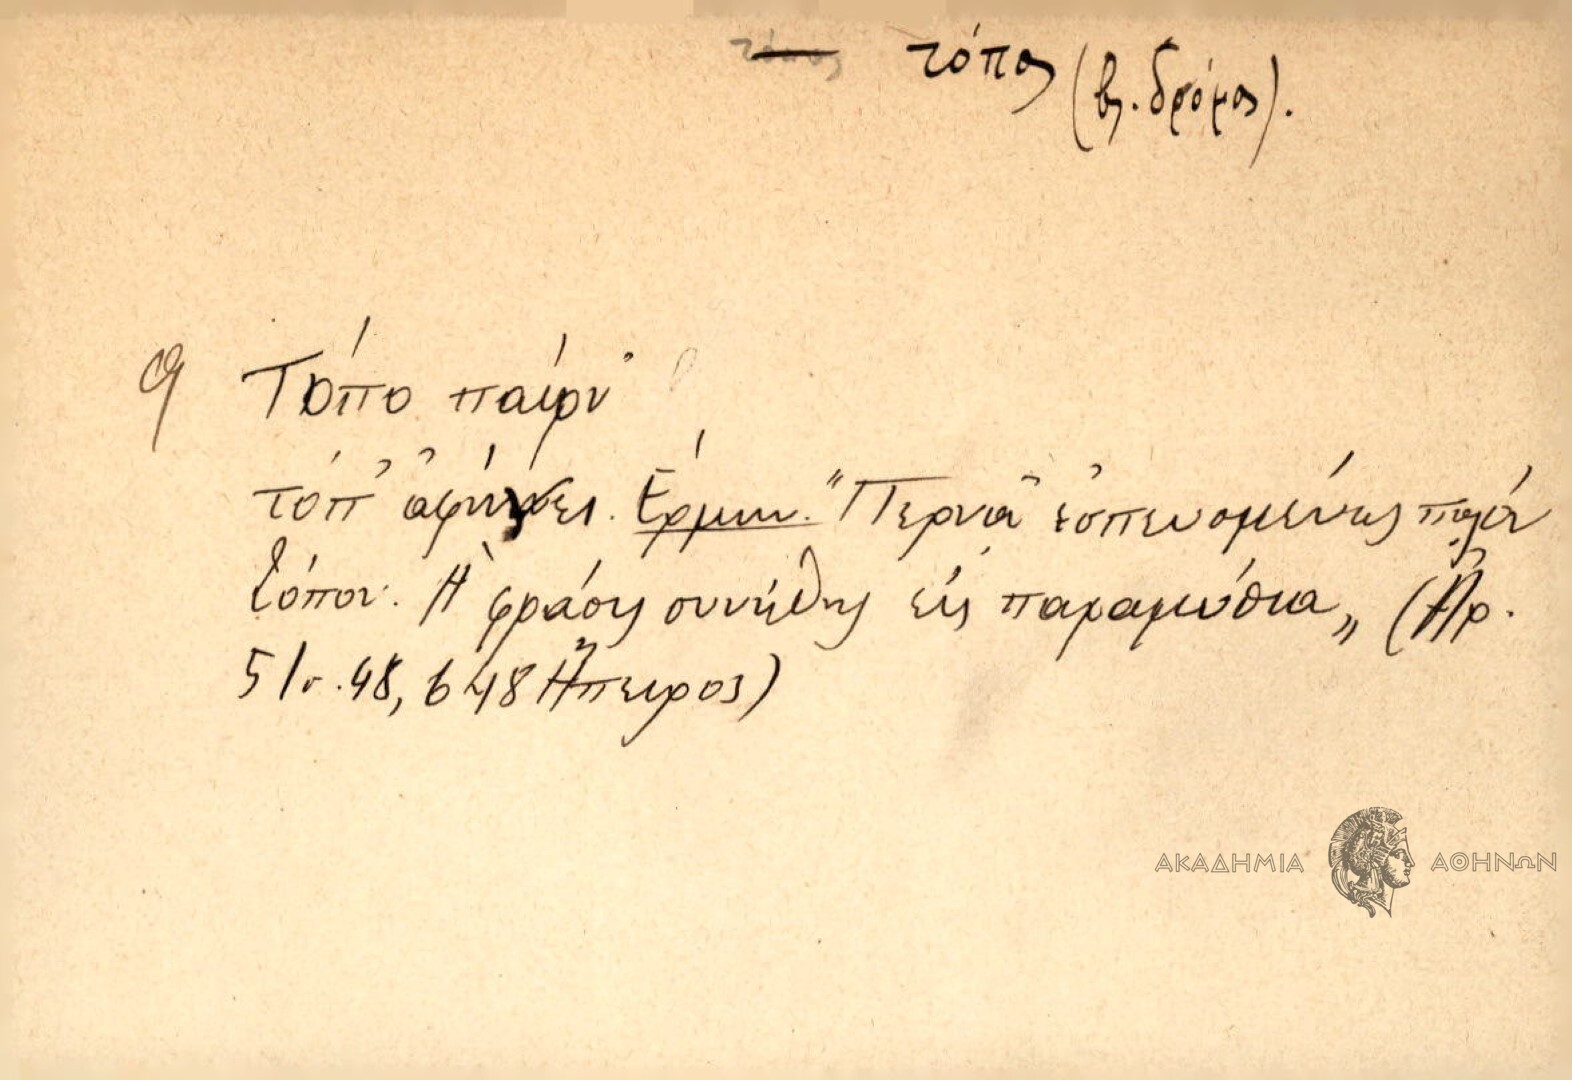 τόπος τόπος (βλ. δρόμος).
Τόπο παίρν'
τόπ' ἀφήνει. Ἑρμην. "Περνᾷ ἐσπευσμένως πολύν
τόπον. Ἡ φράσις συνήθης εἰς παραμύθια„ (Ἀρ.
51σ.48, 648 Ἤπειρος)
ΑΚΑΔΗΜΙΑ ΑΘΗΝΩΝ